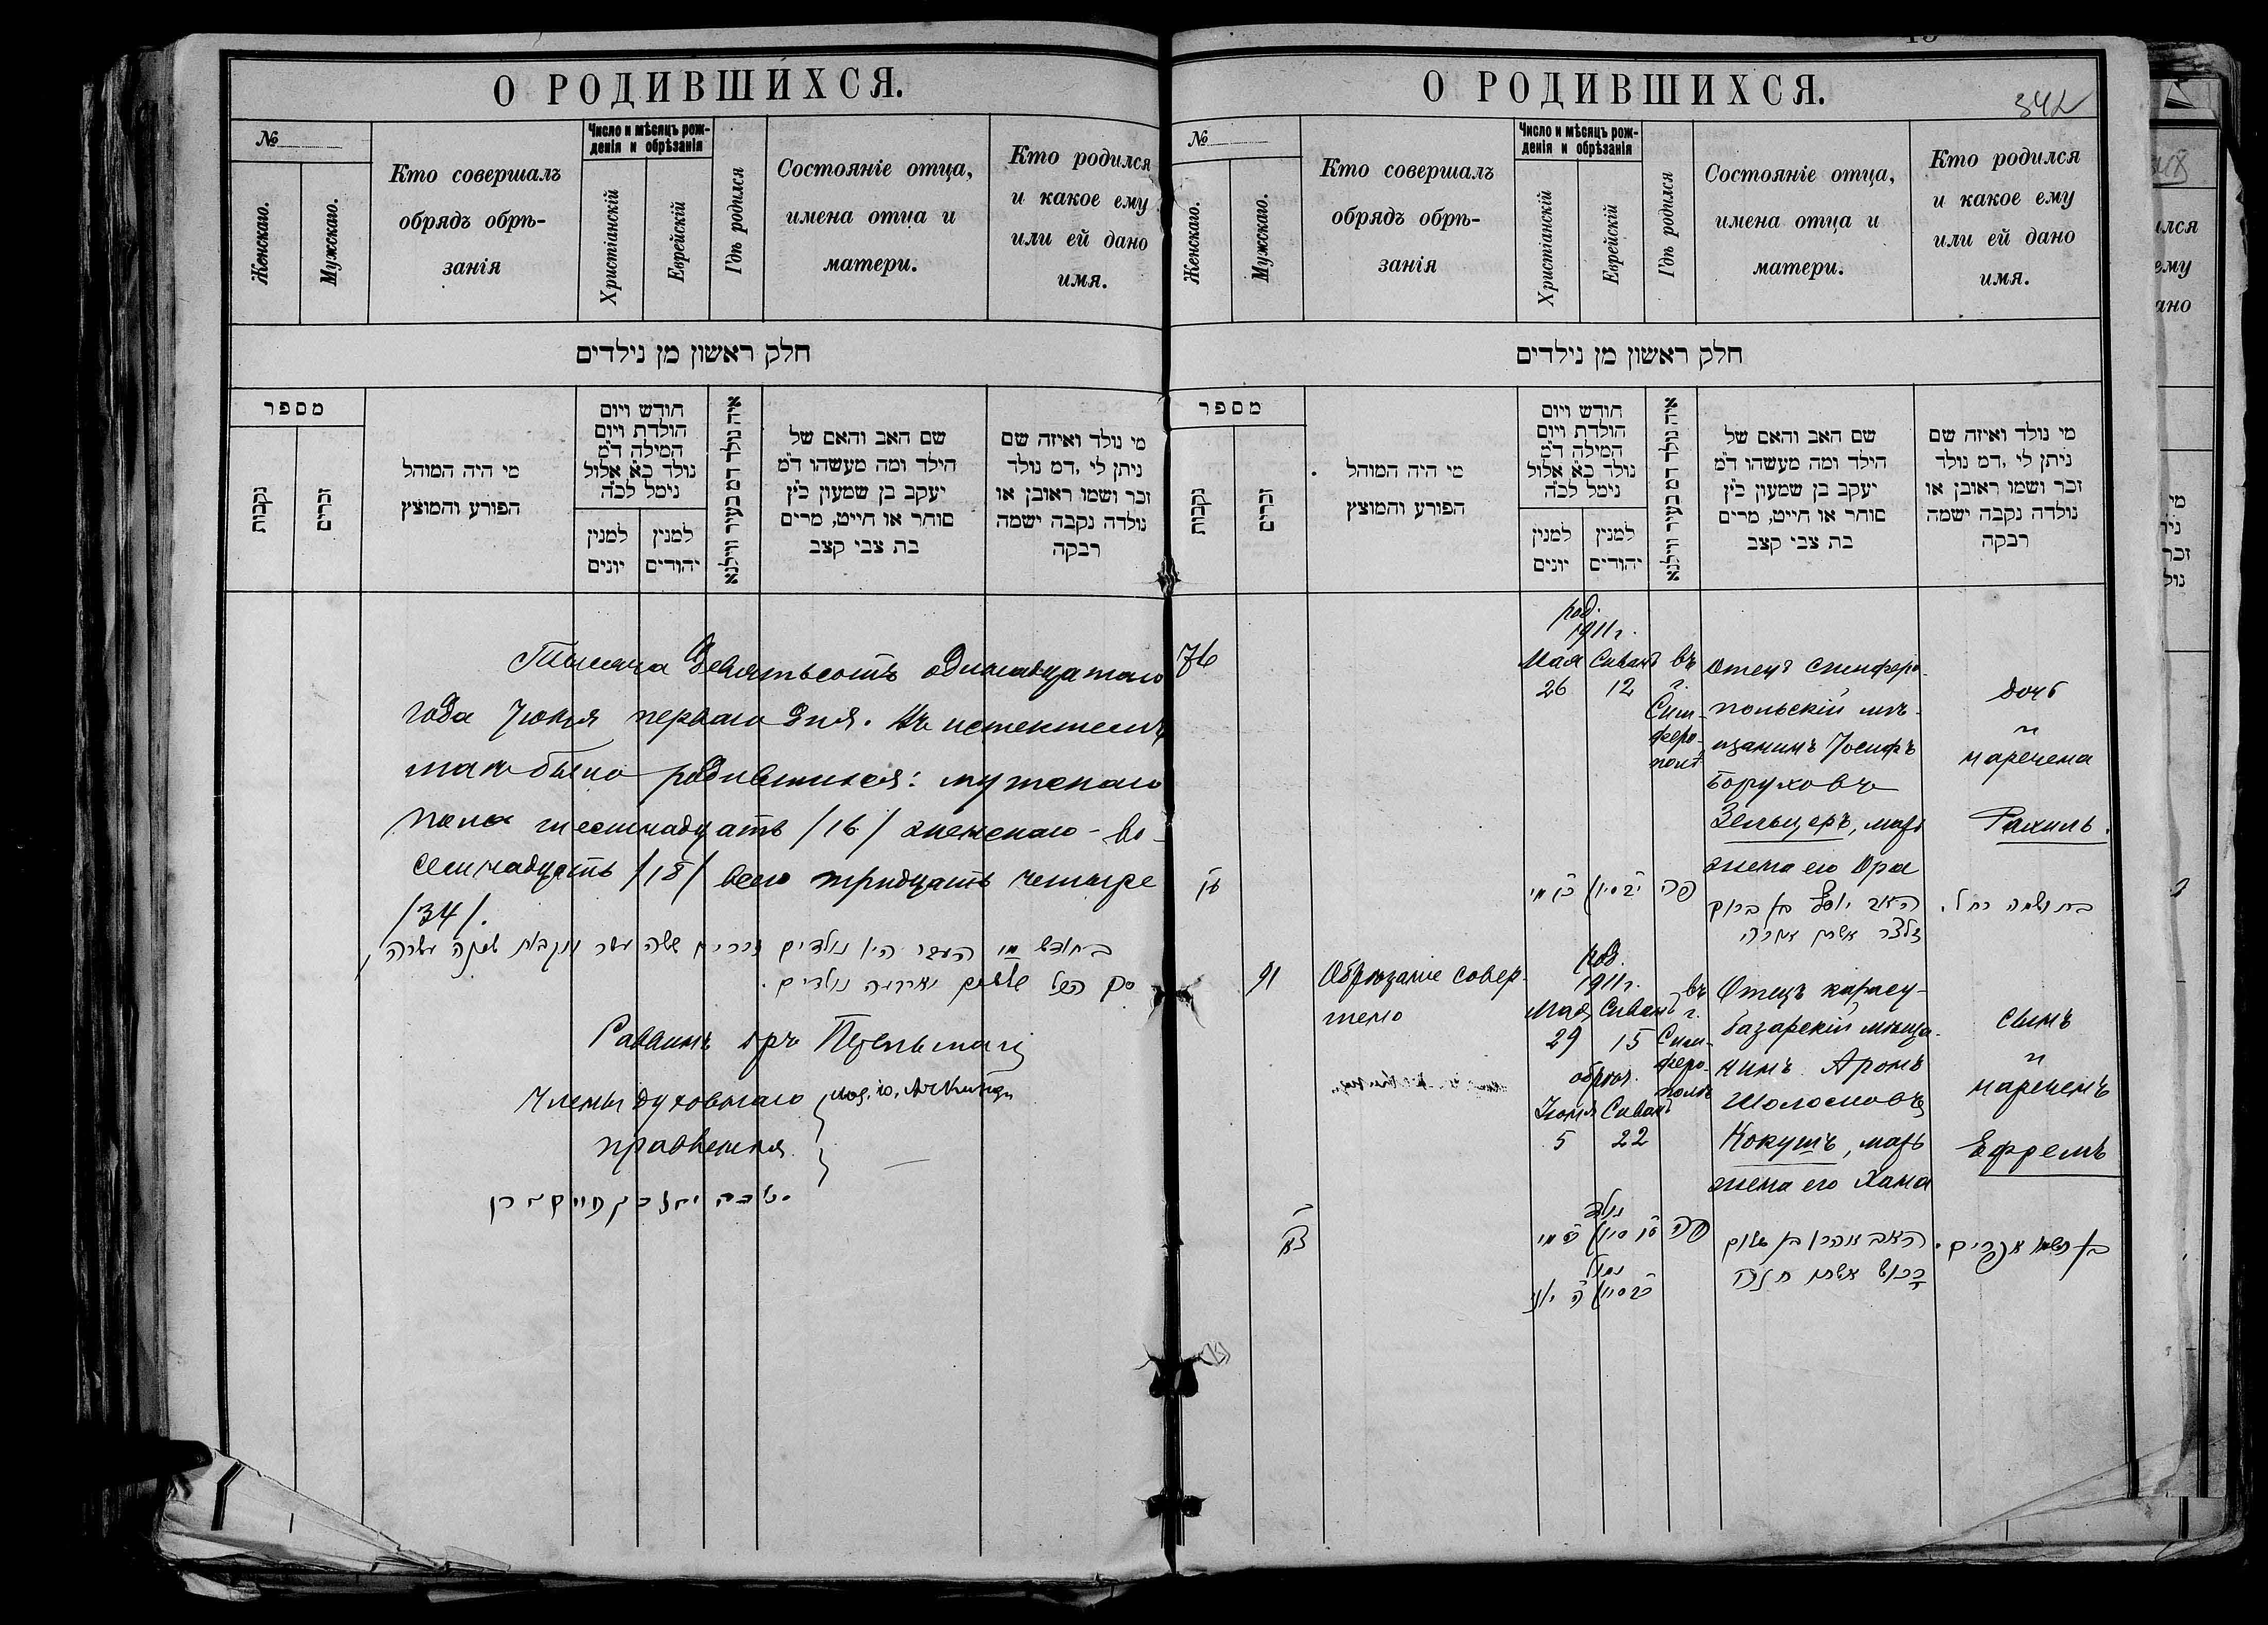 О РОДИВШИХСЯ.
№
Женскаго.
Мужскаго.
Кто совершалъ
обрядъ обрѣ-
занія
Число и мѣсяцъ рож-
денія и обрѣзанія
Христіанскій
Еврейскій
Гдѣ родился
Состояніе отца,
имена отца и
матери.
Кто родился
и какое ему
или ей дано
имя.
חלק ראשון מן נילדים
מספר
נקבות
זכרים
מי היה המוהל
הפורע והמוצץ
חודש ויום
הולדת ויום
המילה ד״מ
נולד כ״א אלול
נימל לכ״ה
למנין
יונים
למנין
יהודים
איה נולד דם בעיר ווילנא
שם האב והאם של
הילד ומה מעשהו ד״מ
יעקב בן שמעון כ״ץ
סוחר או חייט, מרים
בת צבי קצב
מי נולד ואיזה שם
ניתן לי ,דמ נולד
זכר ושמו ראובן או
נולדה נקבה ישמה
רבקה
Тысяча девятьсотъ одинадцатаго
года Іюня перваго дня. Въ истекшемъ
маѣ было родившихся: мужскаго
пола шестнадцать /16/ женскаго - во-
семнадцать /18/ всего тридцать четыре
/34/.
בחודש מי העבר היו נולדים זכרים ששה עשר ונקבות שמנה עשרה
סך הכל שלשים וארבעה נולדים.
Раввинъ
Члены духовнаго
правленія
О РОДИВШИХСЯ.
342
№
Женскаго.
Мужскаго.
Кто совершалъ
обрядъ обрѣ-
занія
Число и мѣсяцъ рож-
денія и обрѣзанія
Христіанскій
Еврейскій
Гдѣ родился
Состояніе отца,
имена отца и
матери.
Кто родился
и какое ему
или ей дано
имя.
חלק ראשון מן נילדים
מספר
נקבות
זכרים
מי היה המוהל
הפורע והמוצץ
חודש ויום
הולדת ויום
המילה ד״מ
נולד כ״א אלול
נימל לכ״ה
למנין
יונים
למנין
יהודים
איה נולד דם בעיר ווילנא
שם האב והאם של
הילד ומה מעשהו ד״מ
יעקב בן שמעון כ״ץ
סוחר או חייט, מרים
בת צבי קצב
מי נולד ואיזה שם
ניתן לי ,דמ נולד
זכר ושמו ראובן או
נולדה נקבה ישמה
רבקה
76
род.
1911 г.
Мая
26
Сиванъ
12
въ
г.
Сим-
феро-
полѣ
Отецъ симферо-
польскій мѣ-
щанинъ Іосифъ
Боруховъ
Зельцеръ, мать
жена его
дочь
и
наречена
Рахиль.
פה
האב יוסף בן ברוך
זלצר אשתו
בת ושמה רחל.
91
Обрѣзаніе совер-
шено
род.
1911 г.
Мая
29
Сиванъ
15
обрѣз.
Іюня
5
Сиванъ
22
въ
г.
Сим-
феро-
полѣ
Отецъ карасу-
базарскій мѣща-
нинъ Аронъ
Шоломовъ
Кокушъ, мать
жена его Хана
сынъ
и
нареченъ
Ефремъ
נולד
פה
נמול
האב אהרן בן שלום
אשתו חנה
בן ושמו אפרים.